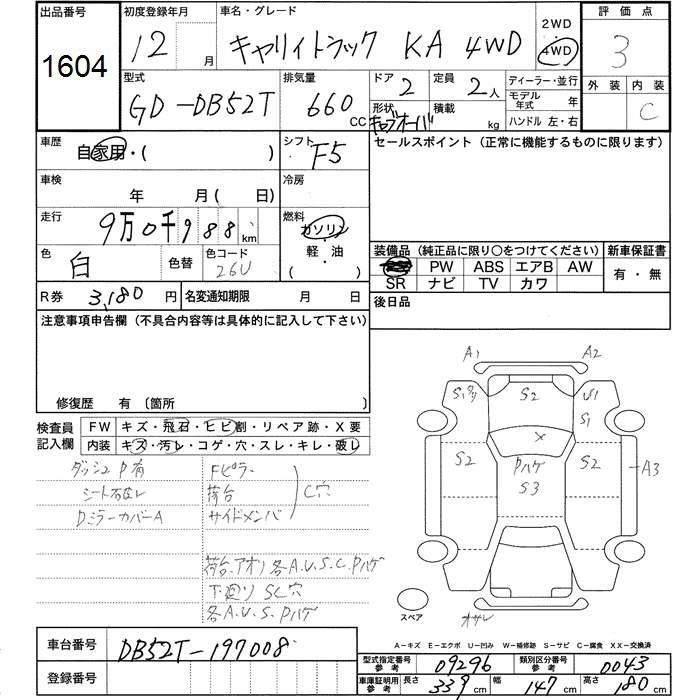 出品番号 初度登録年月 車名・グレード 2WD 評価点
1604 12月 キャリィトラック KA 4WD 4WD 3
型式 排気量 ドア 2 定員 2人 ディーラー・並行 外装 内装
GD-DB52T 660 CC 形状 積載 kg モデル年式 年 C
キャブオーバ ハンドル 左・右
車歴 シフト セールスポイント(正常に機能するものに限ります)
自家用・( ) F5
車検 冷房
年 月( 日)
走行 燃料
9万0千988km ガソリン
色 色替 色コード 軽・油 装備品(純正品に限り○をつけてください) 新車保証書
白 26U ( ) PW ABS エアB AW 有・無
SR ナビ TV カワ
R券 3,180円 名変通知期限 月 日 後日品
注意事項申告欄(不具合内容等は具体的に記入して下さい)
修復歴 有 〔箇所 〕
検査員 FW キズ・飛石・ヒビ割・リペア跡・X要
記入欄 内装 キズ・汚レ・コゲ・穴・スレ・キレ・破レ
ダッシュP有 Fピラー
シート破レ 荷台 C穴
DミラーカバーA サイドメンバ
荷台、アオリ各A.U.S.C.Pハゲ
下廻り SC穴
各A.U.S.Pハゲ
A1 A2
S2 U1
S1
S2 X S2 A3
Pハゲ
S3
スペア
A-キズ E-エクボ U-凹み W-補修跡 S-サビ C-腐食 XX-交換済
車台番号 DB52T-197008
登録番号
型式指定番号 参考 09296 類別区分番号 参考 0043
車庫証明用 参考 長さ 339cm 幅 147cm 高さ 180cm